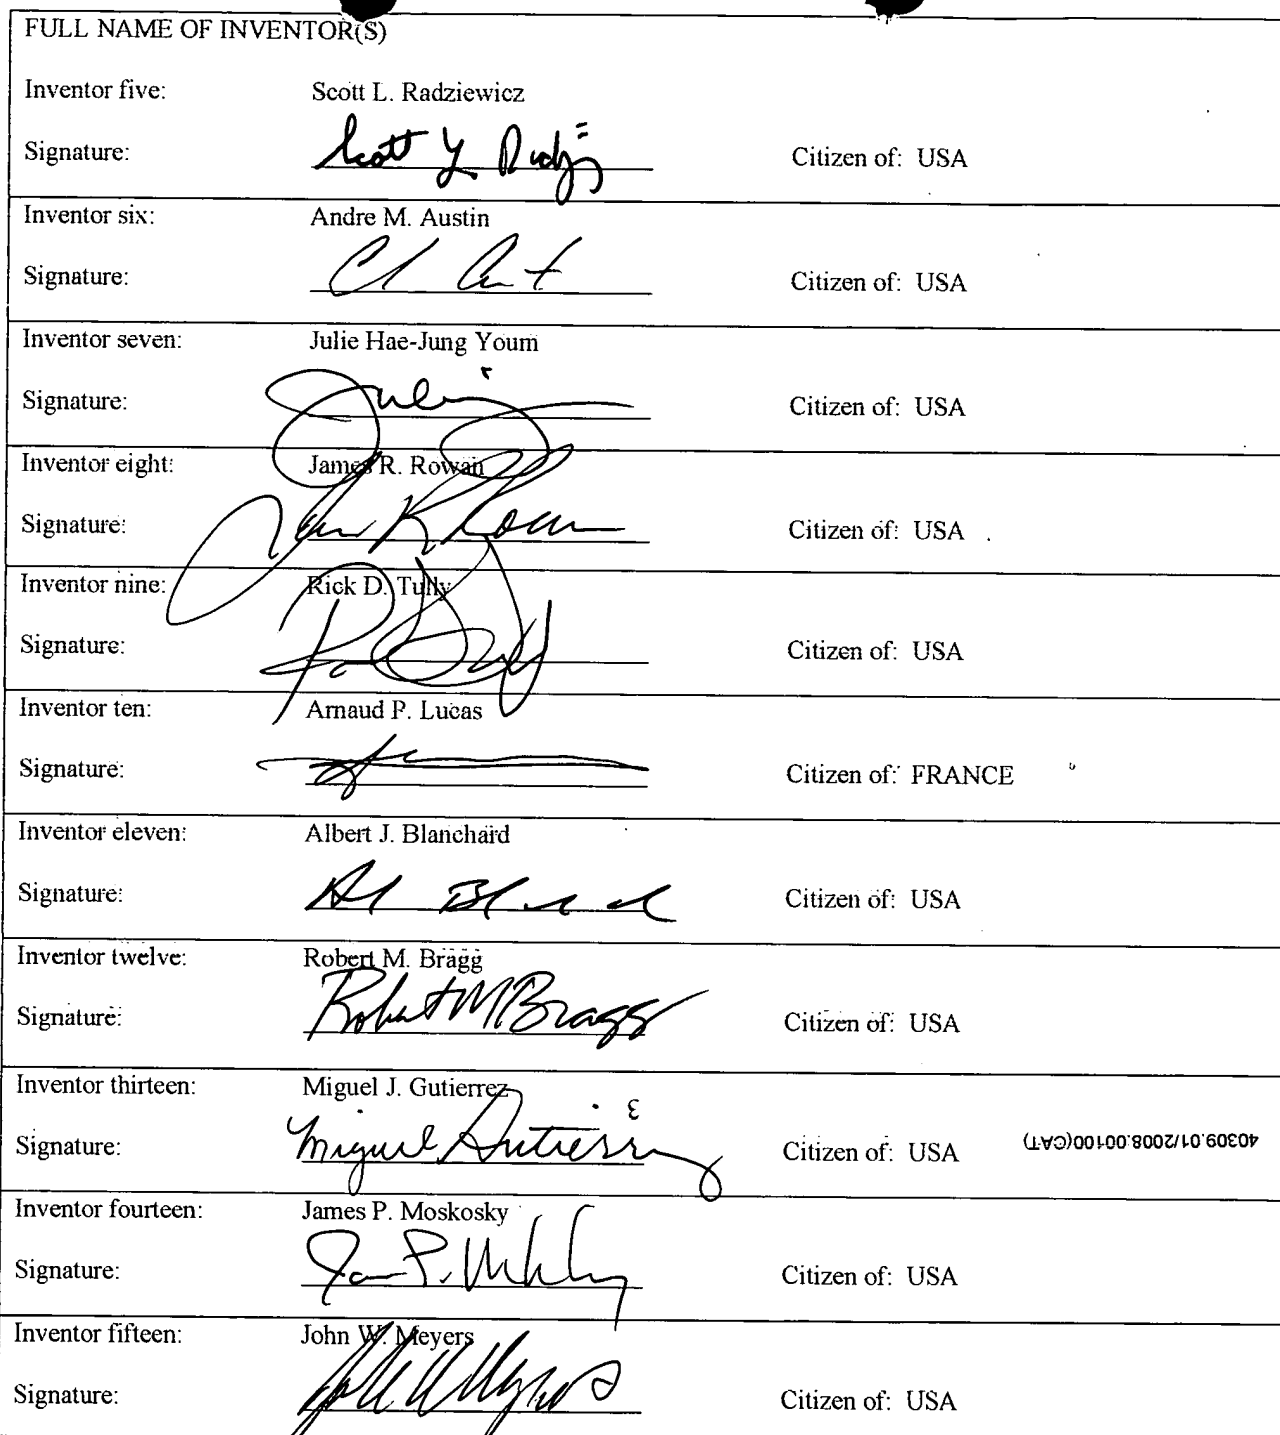 FULL NAME OF INVENTOR(S)
Inventor five: Scott L. Radziewicz
Signature: Citizen of: USA
Inventor six: Andre M. Austin
Signature: Citizen of: USA
Inventor seven: Julie Hae-Jung Youm
Signature: Julie Citizen of: USA
Inventor eight: James R. Rowan
Signature: Citizen of: USA
Inventor nine: Rick D. Tully
Signature: Citizen of: USA
Inventor ten: Arnaud P. Lucas
Signature: Citizen of: FRANCE
Inventor eleven: Albert J. Blanchard
Signature: Citizen of: USA
Inventor twelve: Robert M. Bragg
Signature: Robert M Bragg Citizen of: USA
Inventor thirteen: Miguel J. Gutierrez
Signature: Miguel Gutierrez Citizen of: USA 40309.01/2008.00100(CAT)
Inventor fourteen: James P. Moskosky
Signature: Citizen of: USA
Inventor fifteen: John W. Meyers
Signature: Citizen of: USA